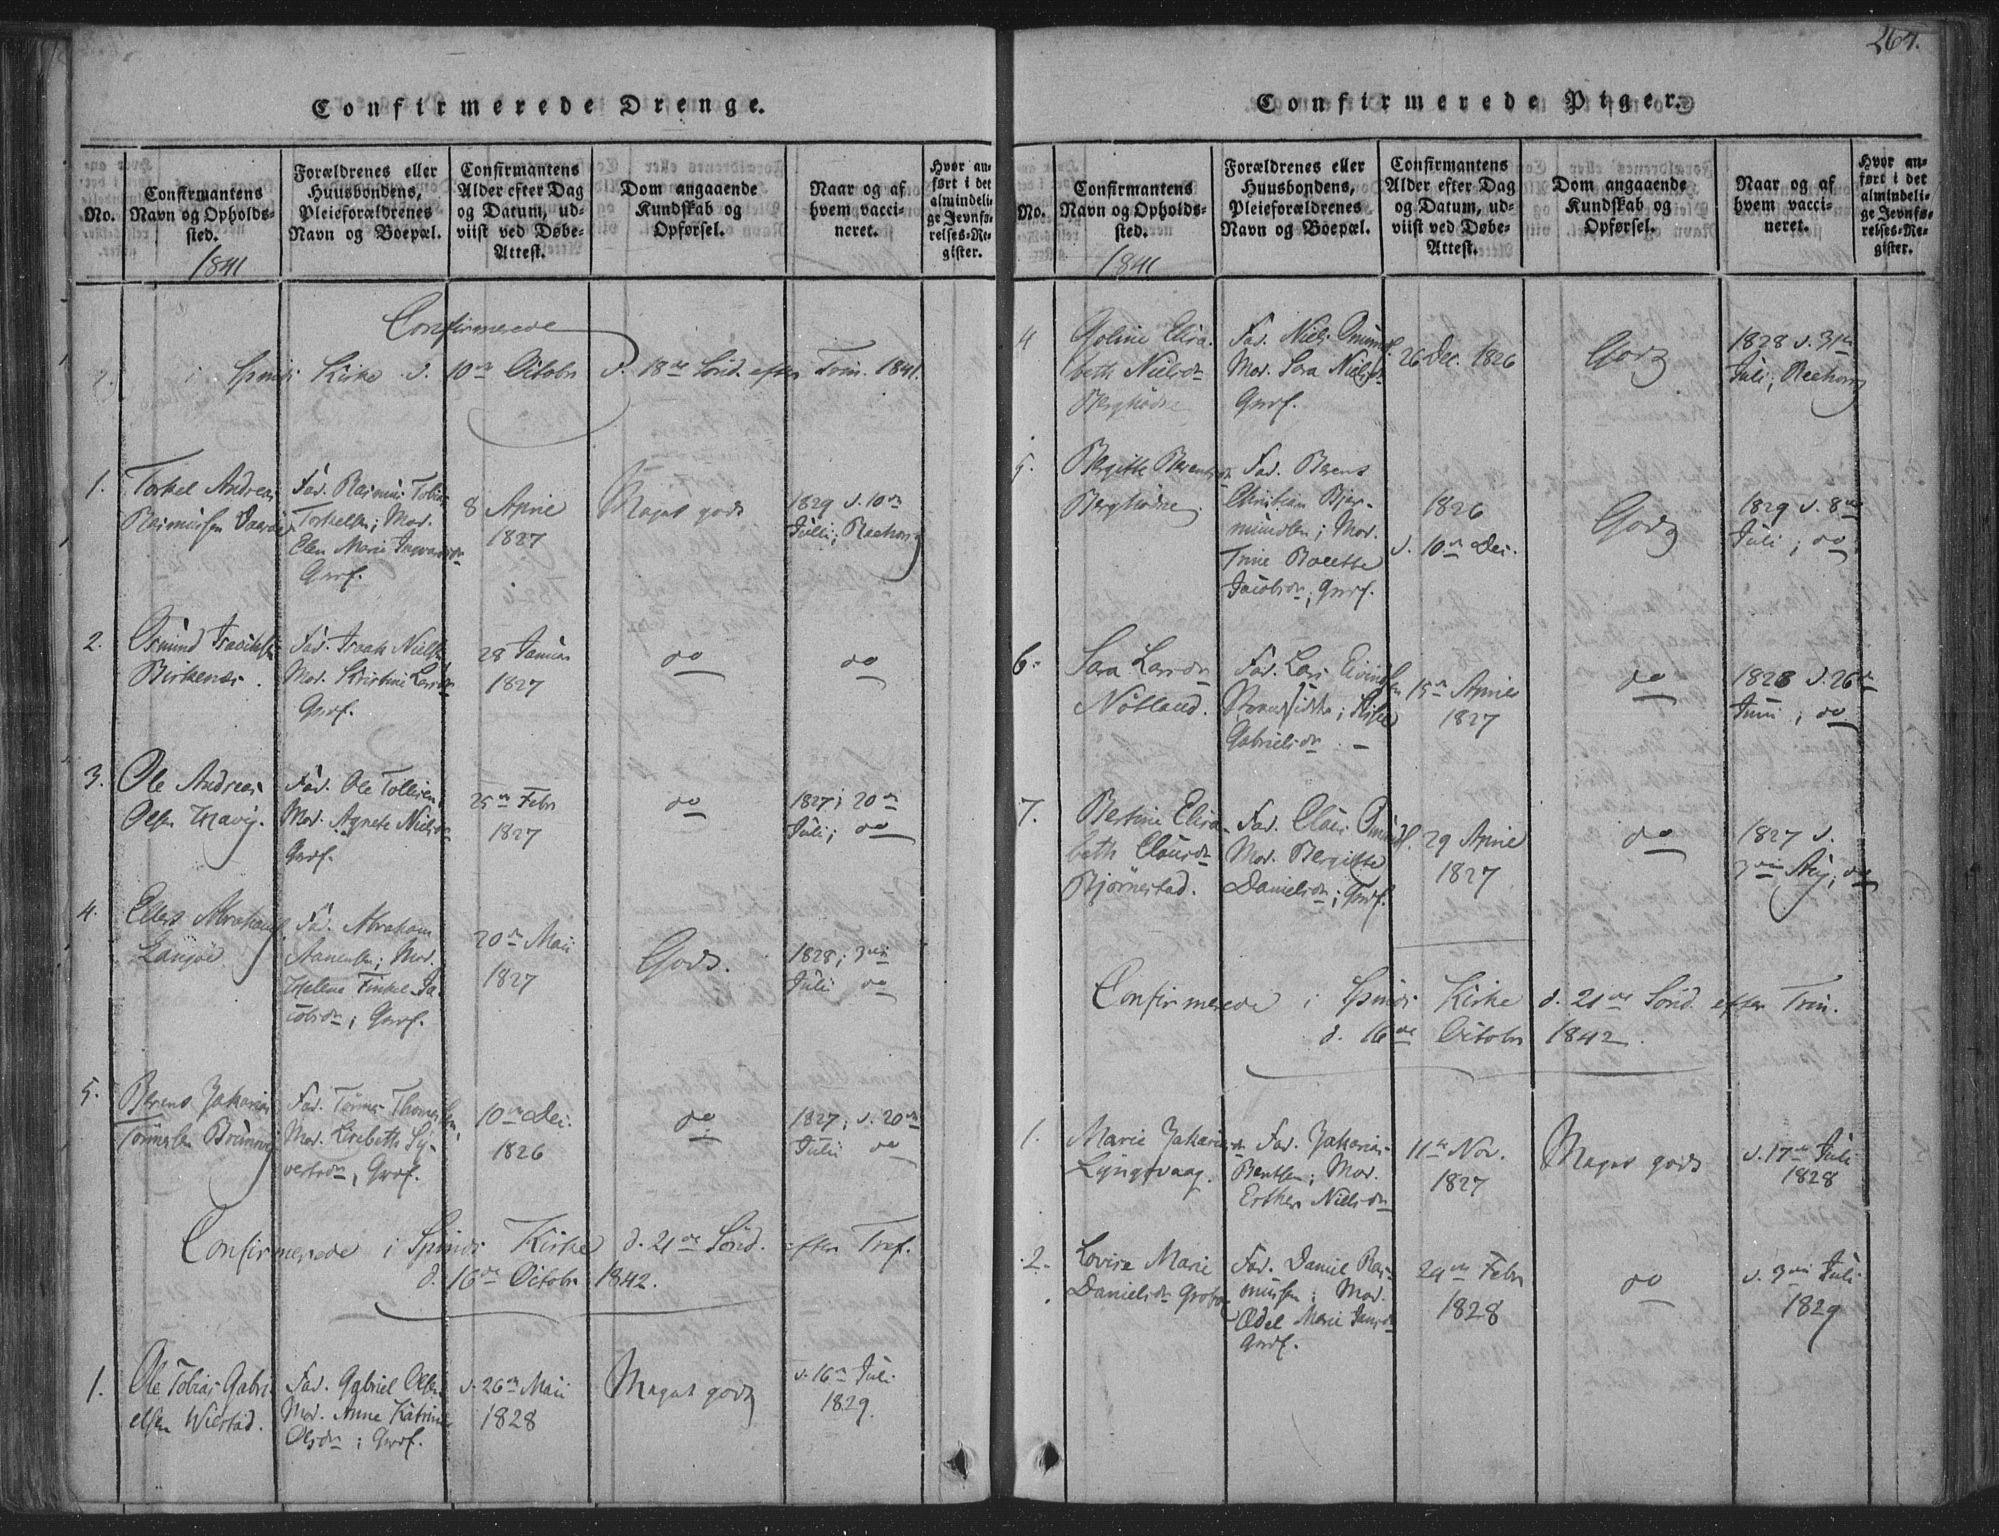 264.
Confirmerede Drenge.
No.
Confirmantens
Navn og Opholds-
sted.
1841
Forældrenes eller
Huusbondens,
Pleieforældrenes
Navn og Boepæl.
Confirmantens
Alder efter Dag
og Datum, ud-
viist ved Døbe-
Attest.
Dom angaaende
Kundskab og
Opførsel.
Naar og af
hvem vacci-
neret.
Hvor an-
ført i det
almindeli-
ge Jevnfø-
relses-Re-
gister.
Confirmerede
i Spinds Kirke d. 10de Octobr d. 18de Sönd. efter Trin. 1841.
1.
Torkel Andreas
Rasmusen
Fad. Rasmus Tobias
Torkelsen; Mod.
Elen Marie
Gmf.
8 April
1827
Meget godt
1829 d. 10de
Juli; Reehorn
2.
Osmund
Birkenes.
Fad. Isaak Niels
Mod. Kristine Larsdr
Gmf.
28 Januar
1827
do
do
3.
Ole Andreas
Olsen
Fad. Ole Tollisen
Mod. Agnete Nielsdr
Gmf.
25de Febr
1827
do
1827; 20de
Juli; do
4.
Ellert Abrahams.
Langøe
Fad. Abraham
Aanensen; Mod.
Helene Finkel Ja-
cobsdr; Gmf.
20de Mai
1827
Godt.
1828; 3die
Juli do
5.
Berent Zakarias
Tönnesen
Fad. Tönnes Thomesen,
Mod. Lisebeth Sy-
vertsdr, Gmf.
10de Dec.
1826
do
1827, d. 20de
Juli do
Confirmerede i Spinds Kirke d. 21de Sönd. efter Tref.
d. 16de Octobr 1842.
1.
Ole Tobias Gabri-
elsen Widstad.
Fad. Gabriel Olsen
Mod. Anne Katrine
Olsdr; Gmf.
d. 26de Mai
1828
Meget godt
d. 16de Juli
1829.
Confirmerede Piger.
No.
Confirmantens
Navn og Opholds-
sted.
1841
Forældrenes eller
Huusbondens,
Pleieforældrenes
Navn og Boepæl.
Confirmantens
Alder efter Dag
og Datum, ud-
viist ved Døbe-
Attest.
Dom angaaende
Kundskab og
Opførsel.
Naar og af
hvem vacci-
neret.
Hvor an-
ført i det
almindeli-
ge Jevnfø-
relses-Re-
gister.
4
Goline Elisa-
beth Nielsdr
Fad. Niels Omunds.
Mod. Sara Nielsdr
Gmf.
26 Dec. 1826
Godt
1828 d. 31te
Juli, Reehorn
5.
Bergitte Berentsdr
Fad. Berent
Christian Bjer-
mundsen; Mod.
Trine Bolette
Jacobsdr; Gmf.
1826
d. 10de Dec.
Godt
1829 d. 8de
Juli; do
6.
Sara Larsdr
Nötland.
Fad. Lars Eivindsen
Gabrielsdr.
15de April
1827
do
1828 d. 26de
Juni; do
7.
Bertine Elisa-
beth Clausdr
Bjørnestad.
Fad. Claus Omunds.
Mod. Bergitte
Danielsdr; Gmf.
29 April
1827
do
1827 d.
3die Aug; do
Confirmerede i Spinds Kirke d. 21de Sönd. efter Trin.
d. 16de Octobr 1842.
1.
Marie Zakariasdr
Lyngsvaag.
Fad. Zakarias
Bentsen; Mod.
Esther Nielsdr
11te Nov.
1827
Meget godt
d. 17de Juli
1828
2.
Lovise Marie
Danielsdr
Fad. Daniel Ras-
musen; Mod.
Ædel Marie Jansdr
Gmf.
29de Febr
1828
do
d. 3die Juli
1829